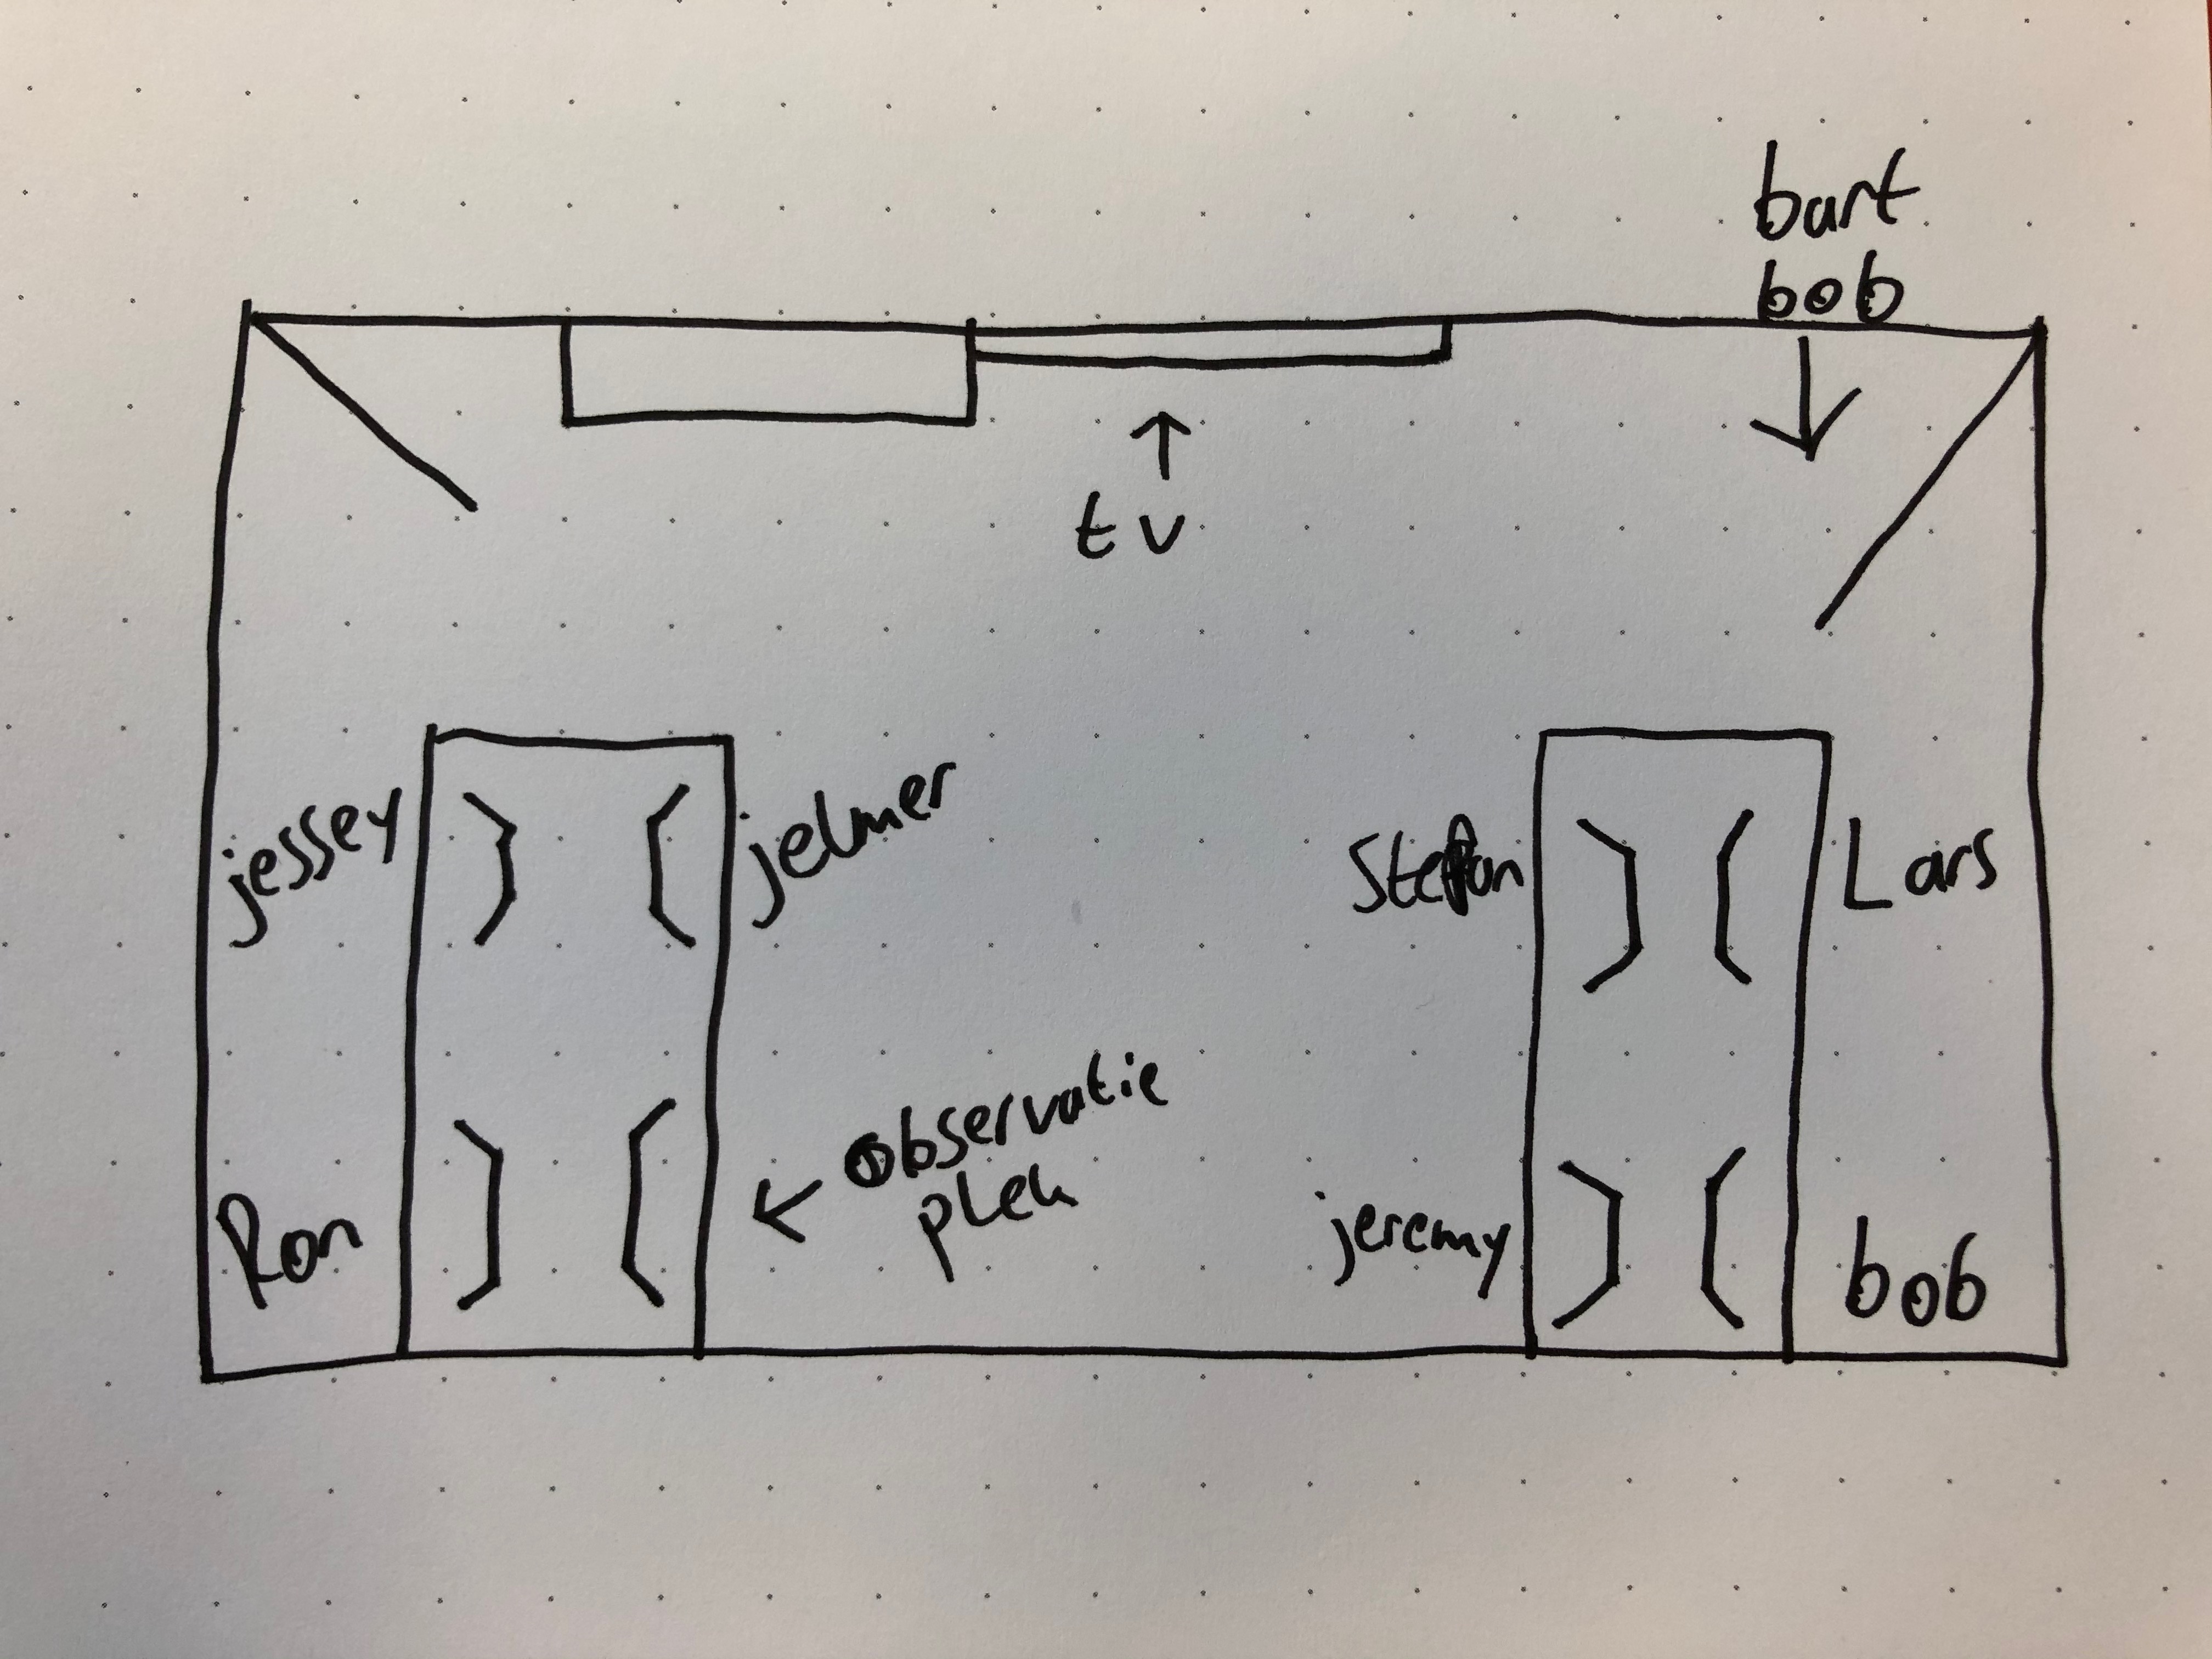 bart
bob
tv
jessey
jelmer
Steffan
Lars
Observatie
plek
Ron
jeremy
bob